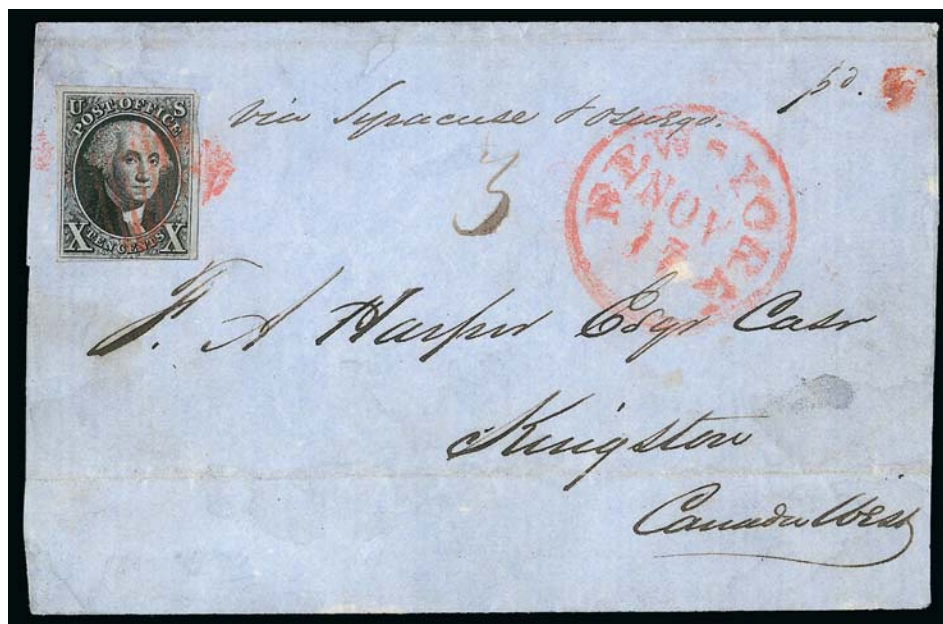 U S
POST OFFICE
X TEN CENTS X
via Syracuse & Oswego. pd.
NEW-YORK
NOV
17
5
F. A Harper Esqr Casr
Kingston
Canada West